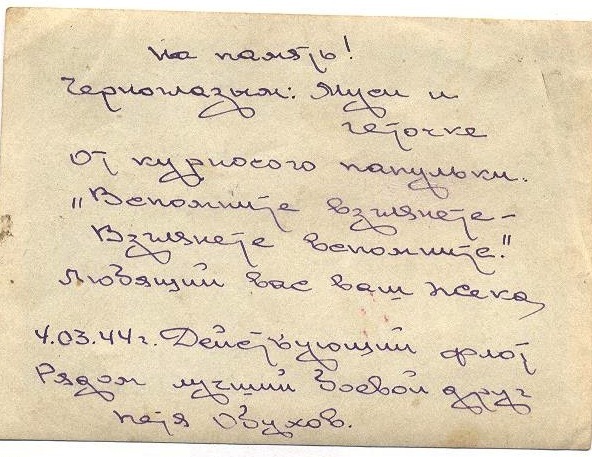 На память!
Черноглазым: Муси и
Геточке
От курносого папульки.
„Вспомните взгляните –
Взгляните вспомните."
Любящий вас ваш Жека,
4.03.44 г. Действующий флот
Рядом лучший боевой друг
Петя Обухов.